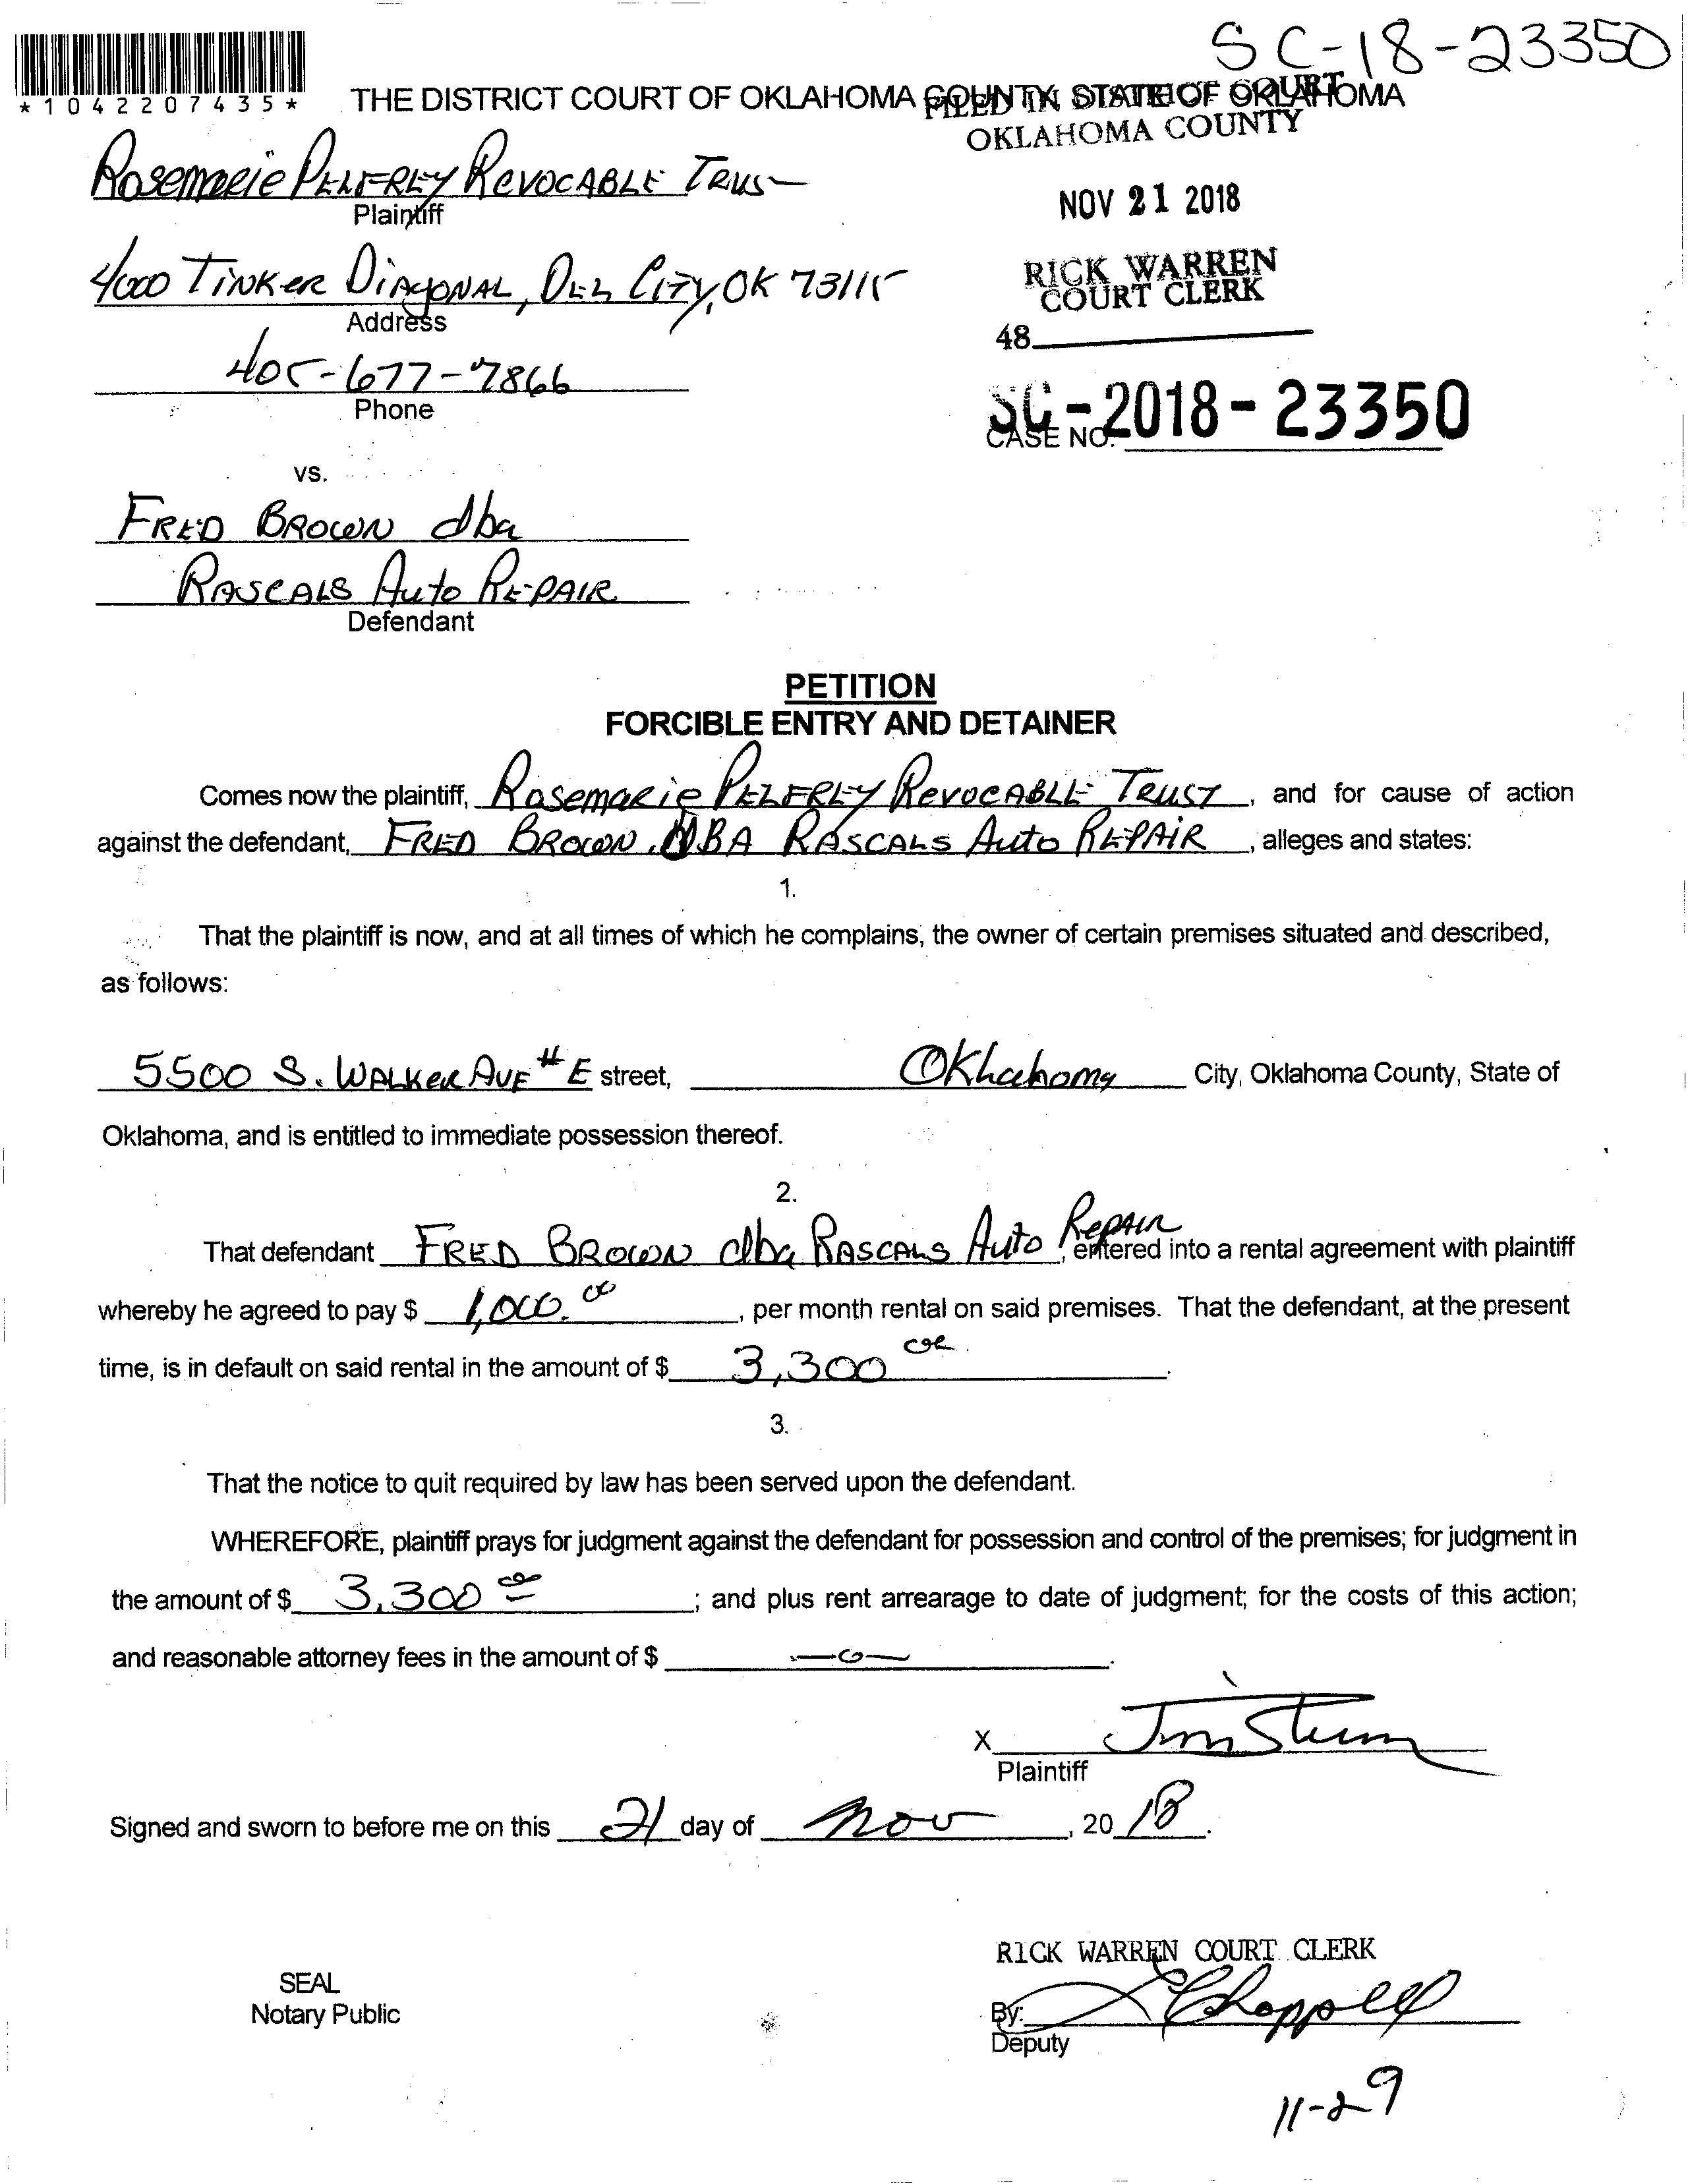 SC-18-23350
*1042207435*
THE DISTRICT COURT OF OKLAHOMA COUNTY, STATE OF OKLAHOMA
FILED IN DISTRICT COURT
OKLAHOMA COUNTY
Rosemarie PELFREY Revocable Trust
Plaintiff
NOV 21 2018
4000 Tinker Diagonal, Del City, OK 73115
Address
RICK WARREN
COURT CLERK
48
405-677-7866
Phone
SC-2018-23350
CASE NO.
vs.
FRED BROWN dba
RASCALS Auto REPAIR
Defendant
PETITION
FORCIBLE ENTRY AND DETAINER
Comes now the plaintiff, Rosemarie PELFREY Revocable Trust, and for cause of action
against the defendant, FRED BROWN DBA RASCALS Auto REPAIR, alleges and states:
1.
That the plaintiff is now, and at all times of which he complains, the owner of certain premises situated and described,
as follows:
5500 S. Walker Ave #E street, Oklahoma City, Oklahoma County, State of
Oklahoma, and is entitled to immediate possession thereof.
2.
That defendant FRED BROWN dba RASCALS Auto Repair, entered into a rental agreement with plaintiff
whereby he agreed to pay $ 1,000.00, per month rental on said premises. That the defendant, at the present
time, is in default on said rental in the amount of $ 3,300 00.
3.
That the notice to quit required by law has been served upon the defendant.
WHEREFORE, plaintiff prays for judgment against the defendant for possession and control of the premises; for judgment in
the amount of $ 3,300 00; and plus rent arrearage to date of judgment; for the costs of this action;
and reasonable attorney fees in the amount of $ -0-.
X
Plaintiff
Signed and sworn to before me on this 21 day of Nov, 2018.
RICK WARREN COURT CLERK
SEAL
Notary Public
By: Chappell
Deputy
11-29